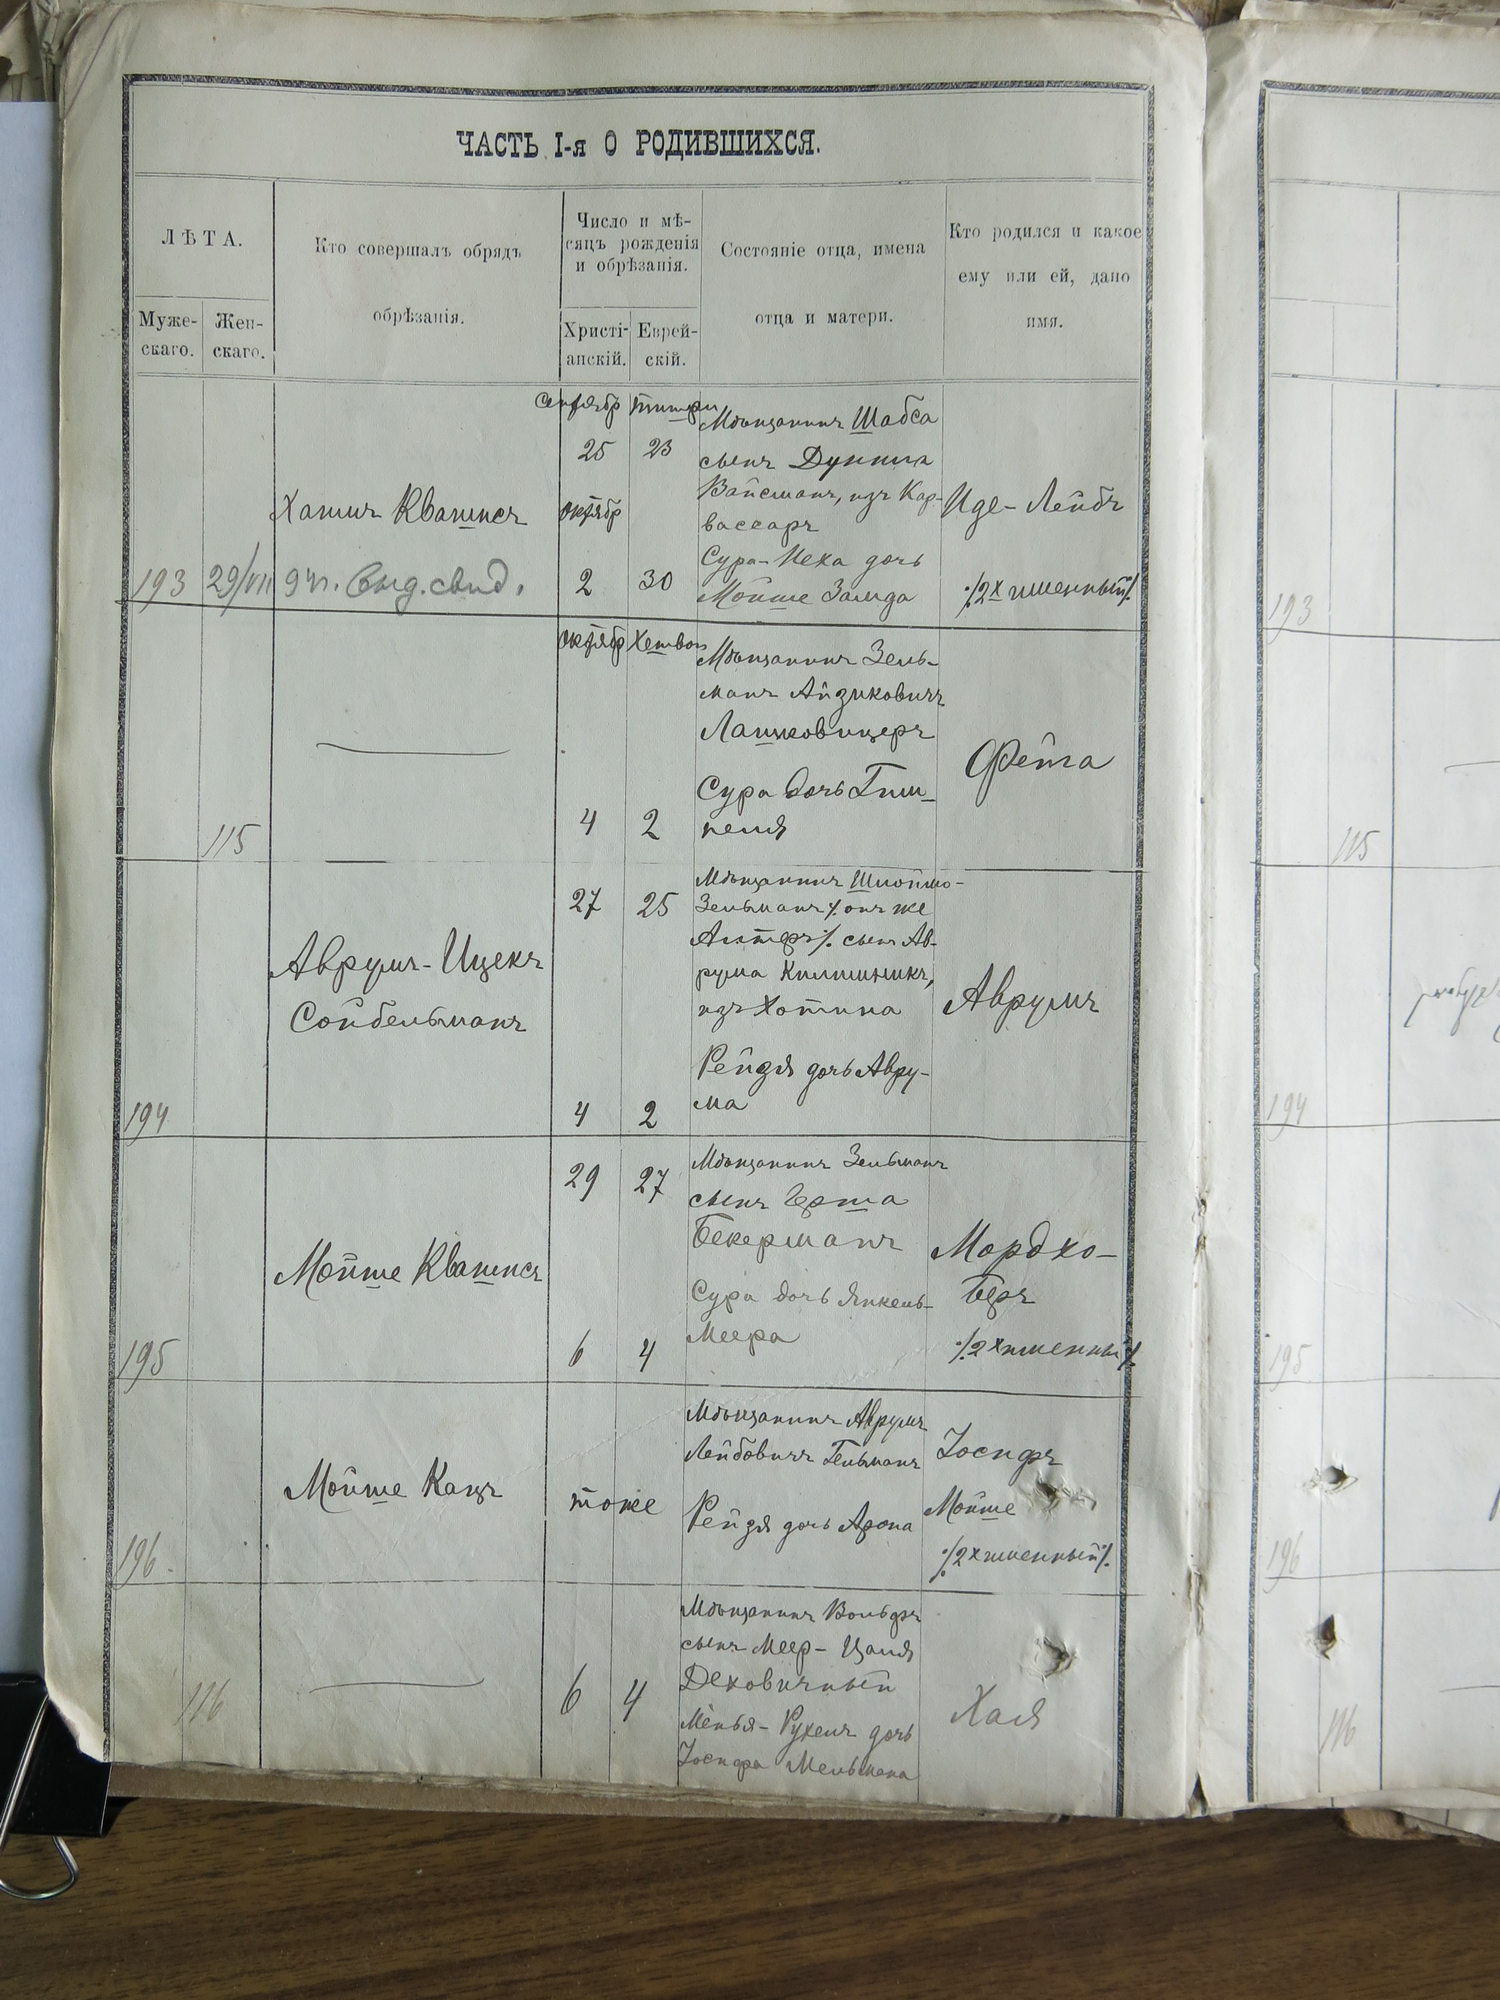 ЧАСТЬ I-я О РОДИВШИХСЯ.
ЛѢТА.
Муже-
скаго.
Жен-
скаго.
Кто совершалъ обрядъ
обрѣзанія.
Число и мѣ-
сяцъ рожденія
и обрѣзанія.
Христі-
анскій.
Еврей-
скій.
Состояніе отца, имена
отца и матери.
Кто родился и какое
ему или ей, дано
имя.
193
29/VII 9 г. выд. свид.
Хаимъ Квашисъ
сентябр
25
октябр
2
тишри
23
30
Мѣщанинъ Шабса
сынъ
Вайсманъ, изъ Кар-
вассаръ
Сура-Неха дочь
Мойше
Иде-Лейбъ
%2х имененный%
115
октябр
4
Хешвон
2
Мѣщанинъ Зель-
манъ Айзиковичъ
Лашковицеръ
Сура дочь Гим-
пеля
Фейга
194
Аврумъ-Ицекъ
Сойбельманъ
27
4
25
2
Мѣщанинъ Шлойме-
Зельманъ % онъ же
Алтеръ % сынъ Ав-
рума Килимникъ,
изъ Хотина
Рейзя дочь Авру-
ма
Аврумъ
195
Мойше Квашисъ
29
6
27
4
Мѣщанинъ Зельманъ
сынъ Герша
Бекерманъ
Сура дочь Янкель-
Меера
Мордко-
Беръ
%2х именный%
196
Мойше Кацъ
тоже
Мѣщанинъ Аврумъ
Лейбовичъ Гельманъ
Рейзя дочь Арона
Іосифъ
Мойше
%2х именный%
116
6
4
Мѣщанинъ Вольфъ
сынъ Меер-Цаля
Деховичный
Менья-Рухель дочь
Іосифа Мельмана
Хая
193
115
194
195
196
116